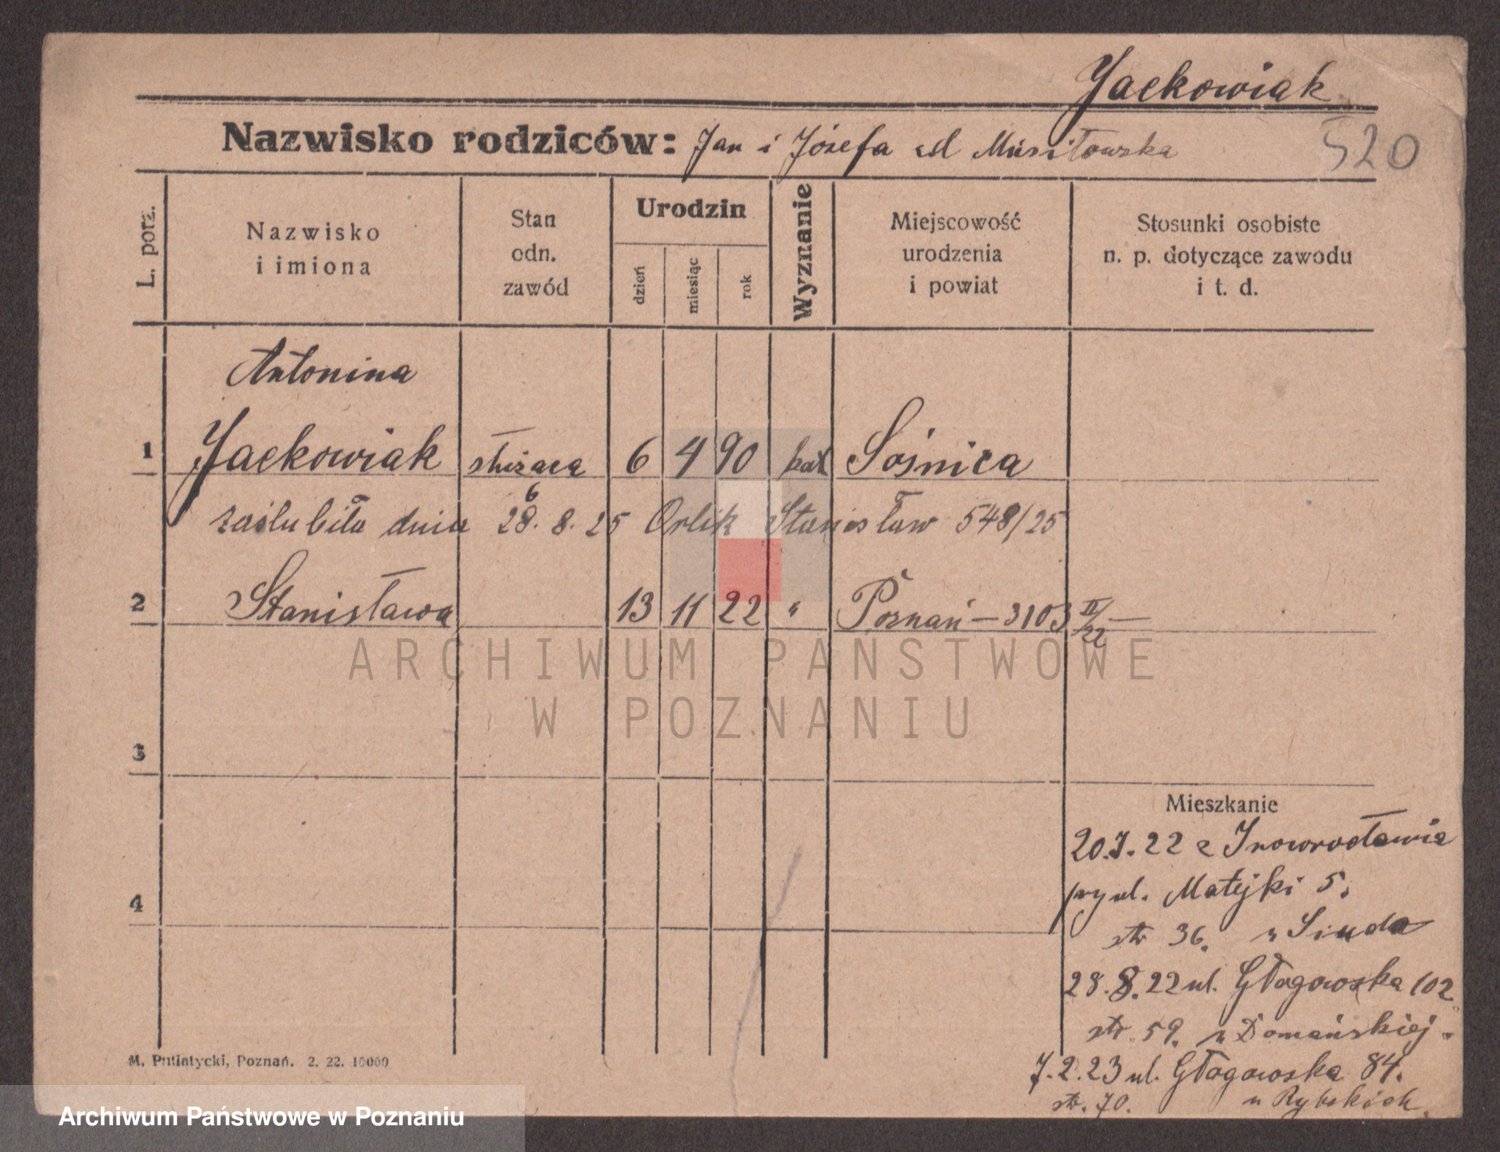 Jackowiak
Nazwisko rodziców: Jan i Józefa
520
L. porz.
Nazwisko
i imiona
Stan
odn.
zawód
Urodzin
dzień
miesiąc
rok
Wyznanie
Miejscowość
urodzenia
i powiat
Stosunki osobiste
n. p. dotyczące zawodu
i t. d.
Antonina
1 Jackowiak służąca 6 4 90 kat Sośnica
zaślubiła dnia 28. 8. 25 Orlik Stanisław 548/25
6
2 Stanisława 13 11 22 " Poznań – 3103 II/22
ARCHIWUM PAŃSTWOWE
W POZNANIU
3
Mieszkanie
20.7.22 z Inowrocławia
przy ul. Matejki 5.
4
str 36. u Siuda
28.8.22 ul. Głogowska 102
str. 59. u Domańskiej.
M. Putiatycki, Poznań. 2. 22. 10000
7.2.23 ul. Głogowska 84.
str. 70. u
Archiwum Państwowe w Poznaniu